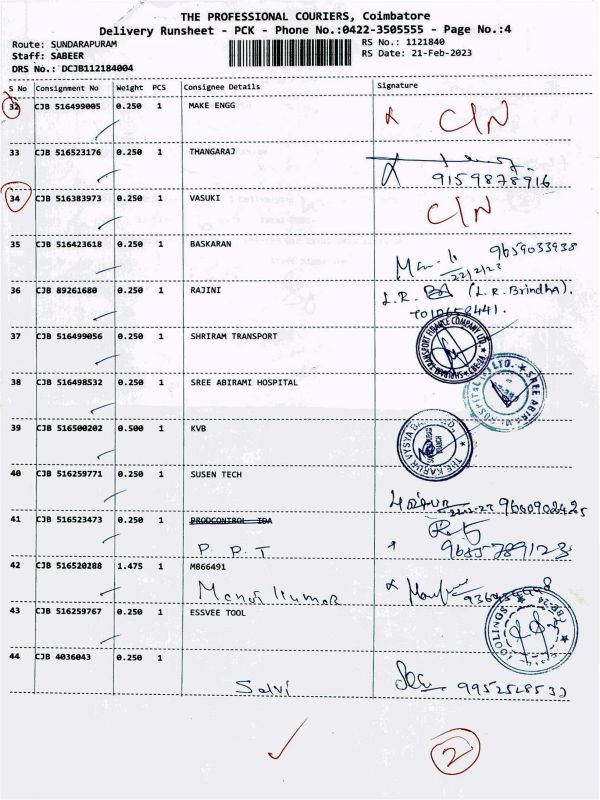 THE PROFESSIONAL COURIERS, Coimbatore
Delivery Runsheet - PCK - Phone No.:0422-3505555 - Page No.:4
Route: SUNDARAPURAM
RS No.: 1121840
Staff: SABEER
RS Date: 21-Feb-2023
DRS No.: DCJB112184004
S No Consignment No Weight PCS Consignee Details Signature
32 CJB 516499005 0.250 1 MAKE ENGG C/N
33 CJB 516523176 0.250 1 THANGARAJ
9159878916
34 CJB 516383973 0.250 1 VASUKI C/N
35 CJB 516423618 0.250 1 BASKARAN 9659033938
22/2/23
36 CJB 89261680 0.250 1 RAJINI L.R. (L.R. Brindha).
37 CJB 516499056 0.250 1 SHRIRAM TRANSPORT
38 CJB 516498532 0.250 1 SREE ABIRAMI HOSPITAL
39 CJB 516500202 0.500 1 KVB
THE KARUR VYSYA BANK LTD.
40 CJB 516259771 0.250 1 SUSEN TECH
41 CJB 516523473 0.250 1 PRODCONTROL IOA
P. P. T 9685789123
42 CJB 516520288 1.475 1 M866491
Manoj Kumar
43 CJB 516259767 0.250 1 ESSVEE TOOL
TOOLINGS
44 CJB 4036043 0.250 1
Selvi 9952528532
2